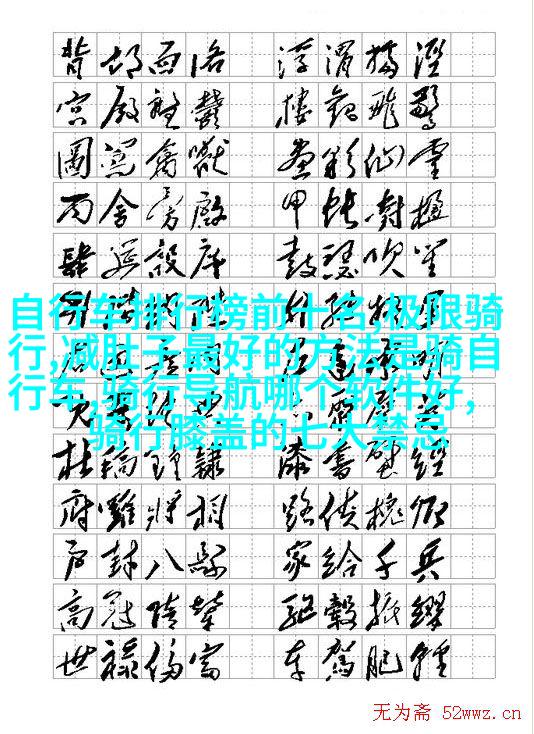 背邙面洛 浮渭據涇
宮殿盤鬱 樓觀飛驚
圖寫禽獸 畫彩仙靈
丙舍旁啟 甲帳對楹
肆筵設席 鼓瑟吹笙
自行车排行榜前十名,极限骑
行,减肚子最好的方法是骑自
行车,骑行导航哪个软件好,
骑行膝盖的七大禁忌
杜稿鍾隸 漆書壁經
府羅將相 路俠槐卿
戶封八縣 家給千兵
高冠陪輦 驅轂振纓
世祿侈富 車駕肥輕
无为斋 52wwz.cn